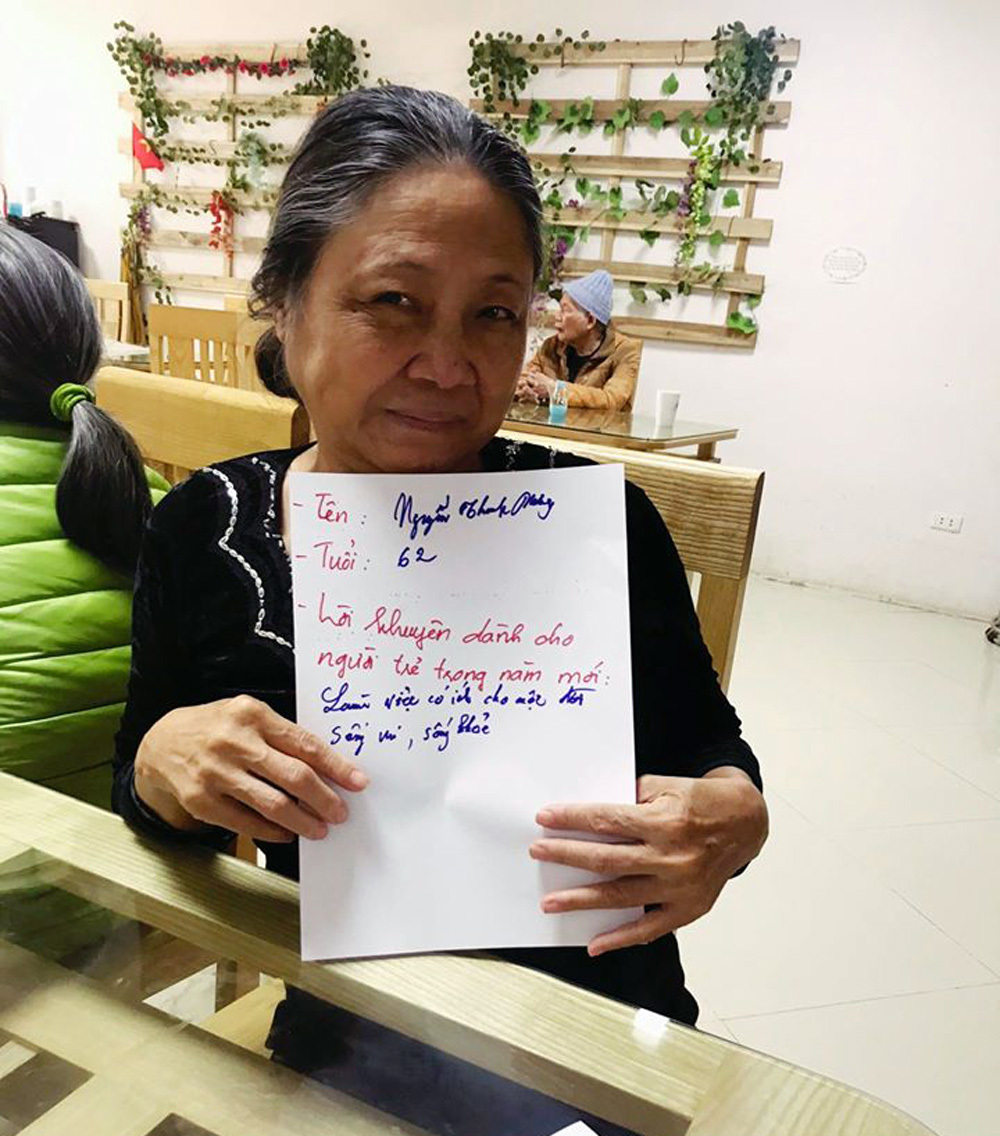 - Tên : Nguyễn Thanh
- Tuổi : 62
- Lời khuyên dành cho
người trẻ trong năm mới :
Làm việc có ích cho một đời
sống vui, sống khỏe